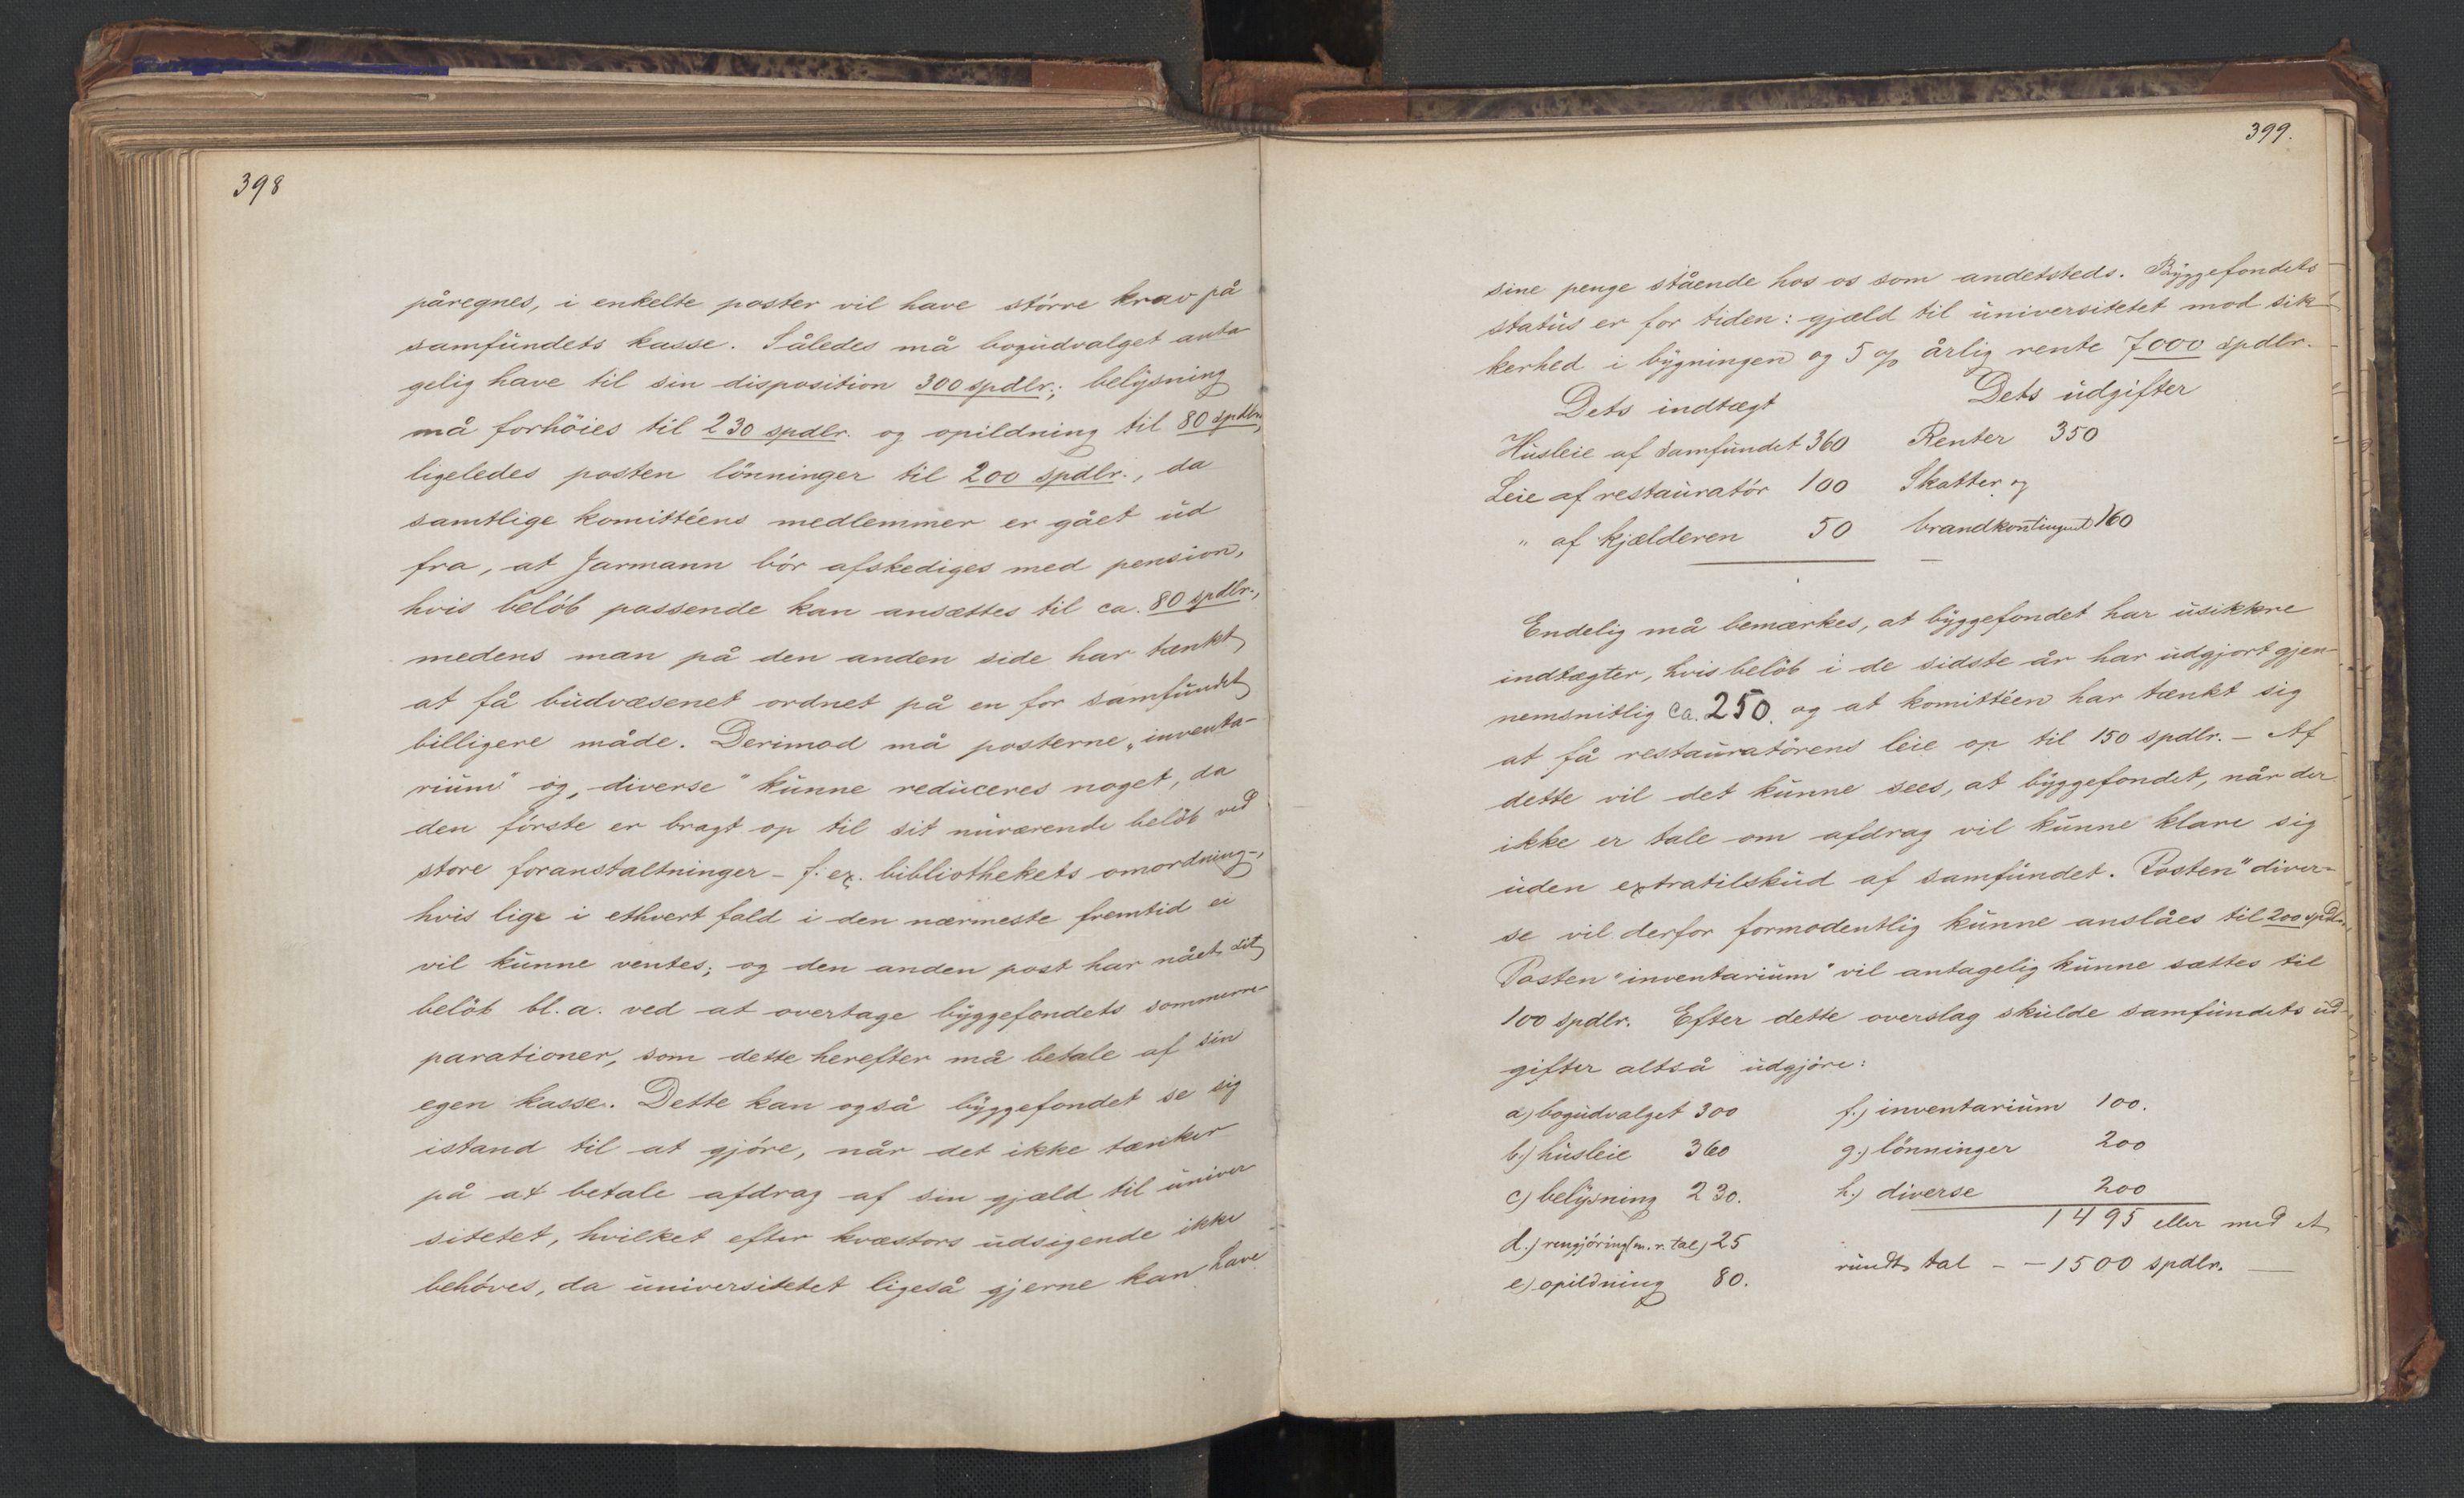 398
påregnes, i enkelte poster vil have större krav på
samfundets kasse. Således må bogudvalget anta
gelig have til sin disposition 300 spdlr.; belysning
må forhöies til 230 spdlr. og opildning til 80 spdlr.,
ligeledes posten lönninger til 200 spdlr., da
samtlige komittéens medlemmer er gået ud
fra, at Jarmann bör afskediges med pension,
hvis belöb passende kan ansættes til ca. 80 spdlr.,
medens man på den anden side har tænkt
at få budvæsenet ordnet på en for samfundet
billigere måde. Derimod må posterne „inventa-
rium" og „diverse" kunne reduceres noget, da
den förste er bragt op til sit nuværende belöb ved
store foranstaltninger – f. ex. bibliothekets omordning –,
hvis lige i ethvert fald i den nærmeste fremtid ei
vil kunne ventes; og den anden post har nået sit
belöb bl. a. ved at overtage byggefondets sommerre-
parationer, som dette herefter må betale af sin
egen kasse. Dette kan også byggefondet se sig
istand til at gjöre, når det ikke tænker
på at betale afdrag af sin gjæld til univer
sitetet, hvilket efter kvæstors udsigende ikke
behöves, da universitetet ligeså gjerne kan have
399.
sine penge stående hos os som andetsteds. Byggefondets
status er for tiden: gjæld til universitetet mod sik-
kerhed i bygningen og 5 % årlig rente 7000 spdlr.
Dets indtægt Dets udgifter
Husleie af samfundet 360 Renter 350
Leie af restauratör 100 Skatter og
" af kjælderen 50 brandkontingent 160
Endelig må bemærkes, at byggefondet har usikkre
indtægter, hvis belöb i de sidste år har udgjort gjen-
nemsnitlig ca. 250. og at komittéen har tænkt sig
at få restauratörens leie op til 150 spdlr. – Af
dette vil det kunne sees, at byggefondet, når der
ikke er tale om afdrag vil kunne klare sig
uden extratilskud af samfundet. Posten "diver-
se vil derfor formodentlig kunne anslåes til 200 spdlr.
Posten "inventarium" vil antagelig kunne sættes til
100 spdlr. Efter dette overslag skulde samfundets ud-
gifter altså udgjöre:
a) bogudvalget 300 f.) inventarium 100.
b.) husleie 360 g.) lönninger 200
c) belysning 230. h.) diverse 200
d.) rengjöring (m. r. tal) 25 1495 eller med et
e) opildning 80. rundt tal – – 1500 spdlr. —